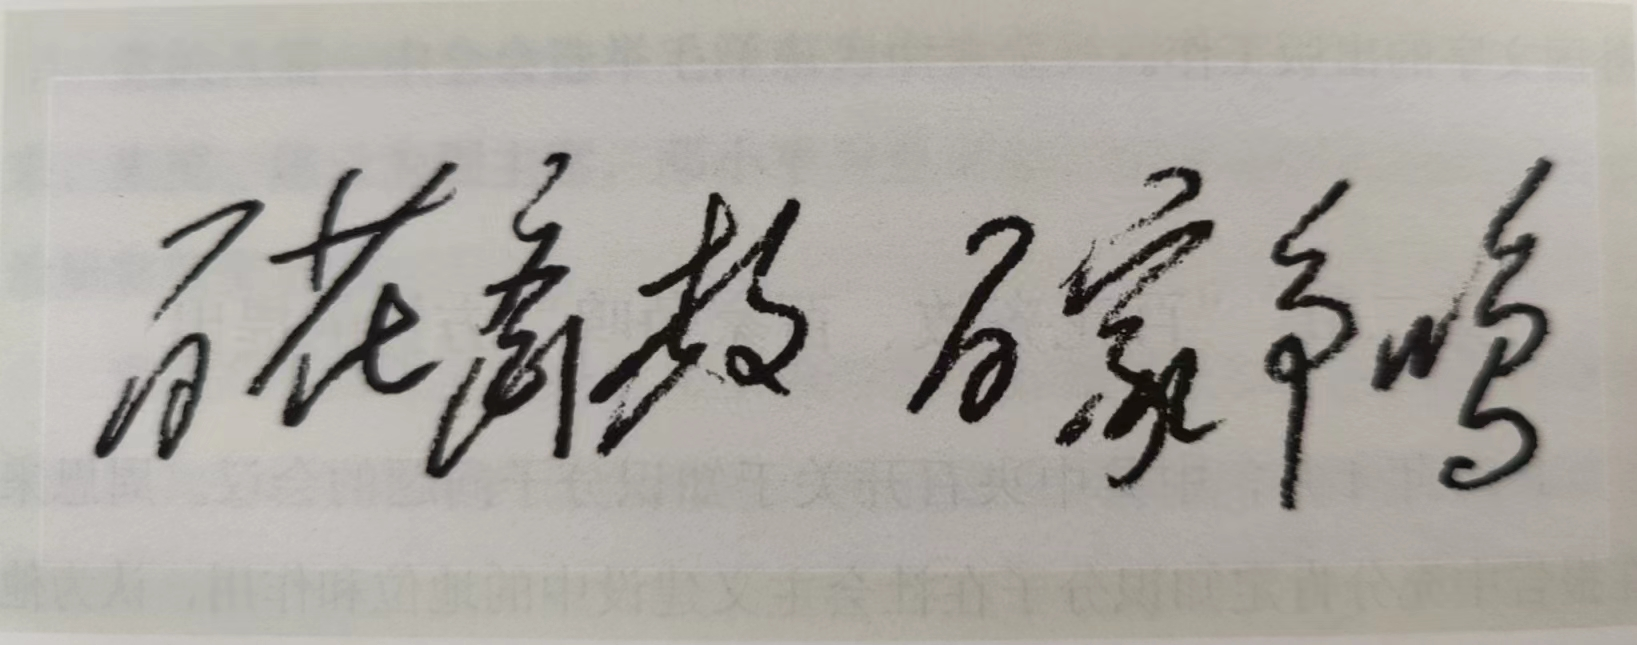 百花齐放 百家争鸣